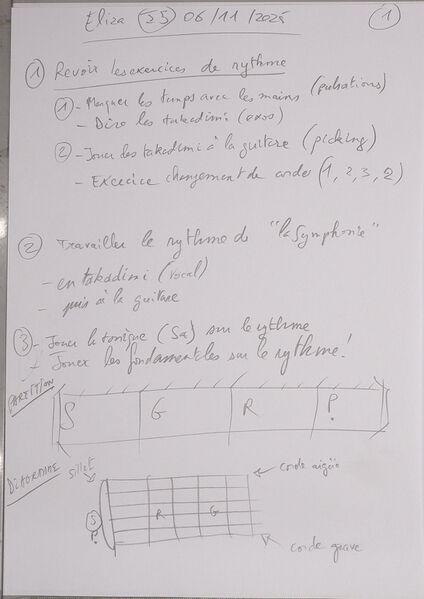 Eliza (25) 06/11/2025 (1)
(1) Revoir les exercices de rythme
(1) - Marquer les temps avec les mains (pulsations)
- Dire les takadimi (exos)
(2) - Jouer les takadimi à la guitare (picking)
- Exercice changement de corde (1, 2, 3, 2)
(2) Travailler le rythme de "la Symphonie"
- en takadimi (vocal)
- puis à la guitare
(3) - Jouer la tonique (Sa) sur le rythme
- Jouer les fondamentales sur le rythme!
PARTITION
S G R P
DIAGRAMME sillet
corde aigüe
S R G
P
corde grave